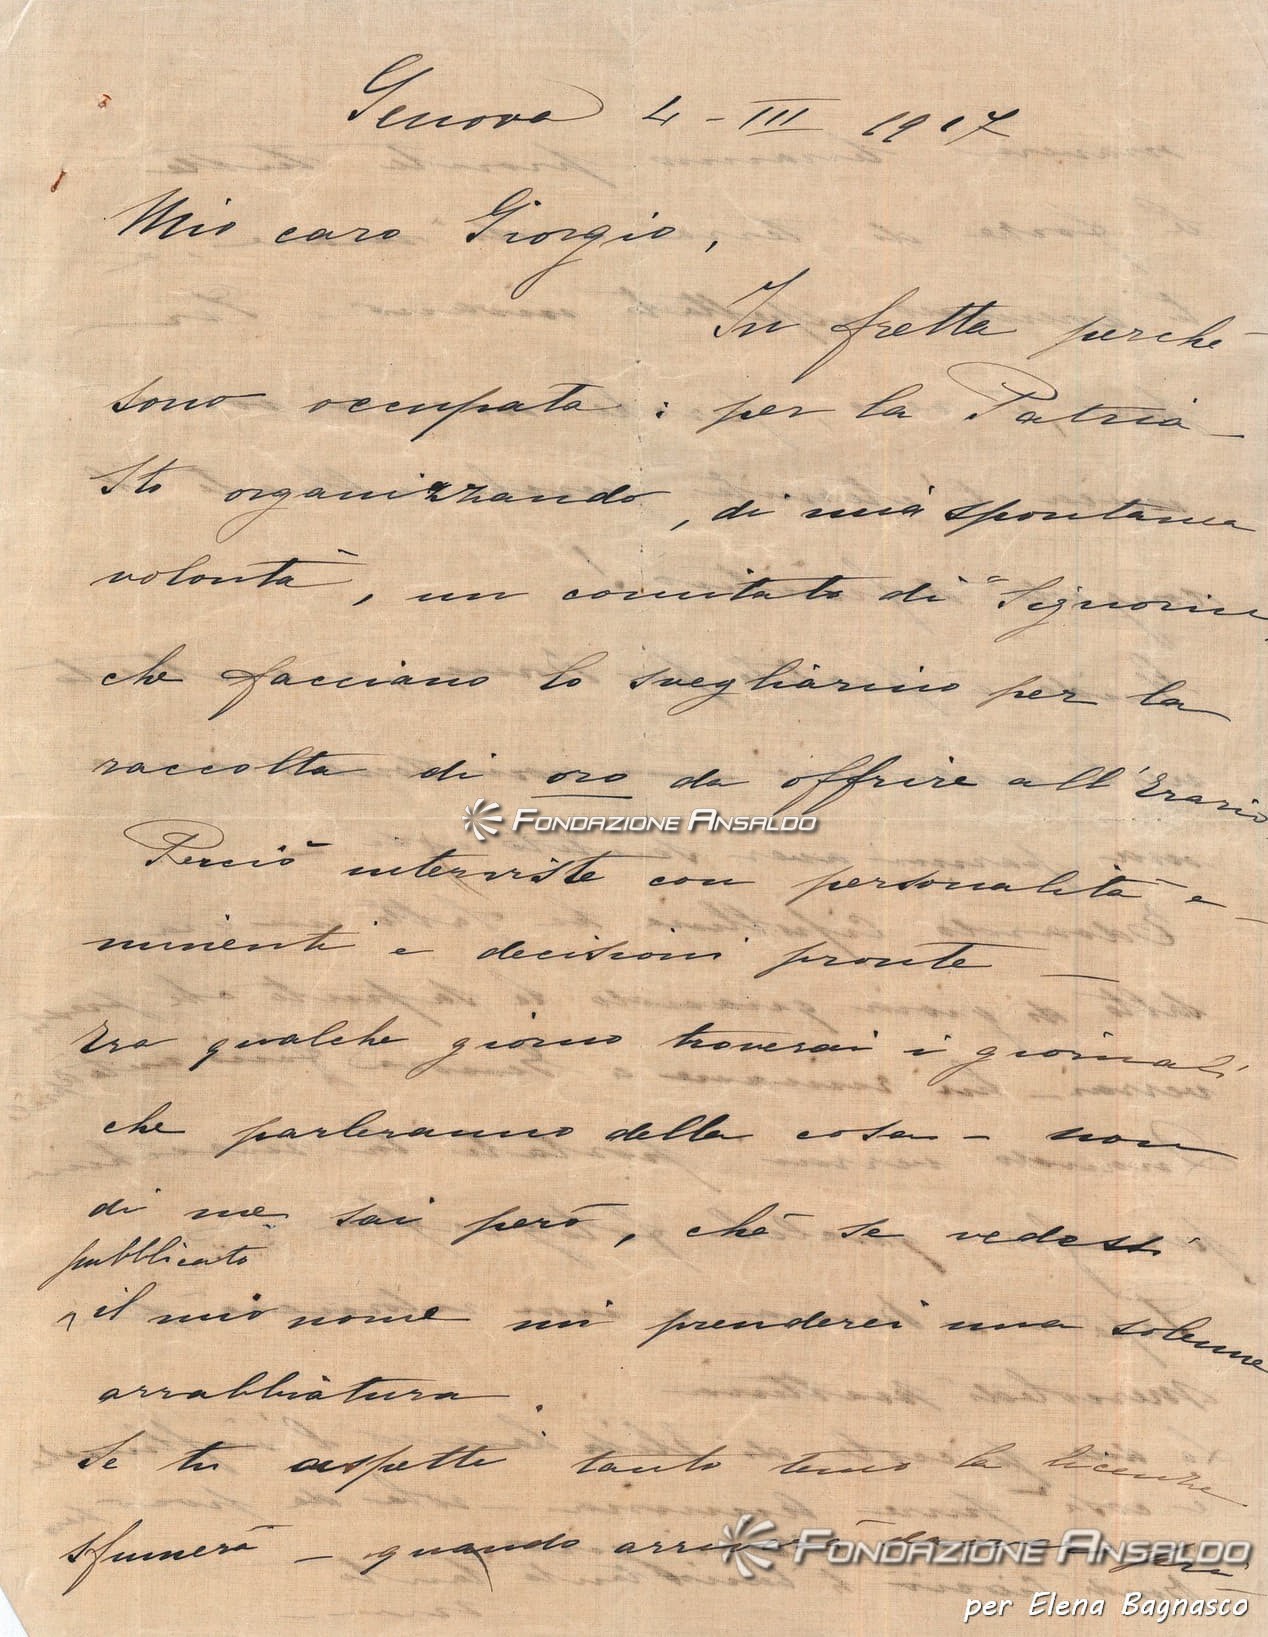 Genova 4 - III 1917
Mio caro Giorgio,
In fretta perchè
sono occupata: per la Patria
Sto organizzando, di mia spontanea
volontà, un comitato di "Signorine"
che facciano lo svegliarino per la
raccolta di oro da offrire all'Erario
Perciò interviste con personalità e-
minenti e decisioni pronte —
Tra qualche giorno troverai i giornali
che parleranno della cosa - non
di me sai però, chè se vedessi
pubblicato
il mio nome mi prenderei una solenne
arrabbiatura.
Se tu aspetti tanto temo la licenza
sfumerà - quando
FONDAZIONE ANSALDO
FONDAZIONE ANSALDO
per Elena Bagnasco